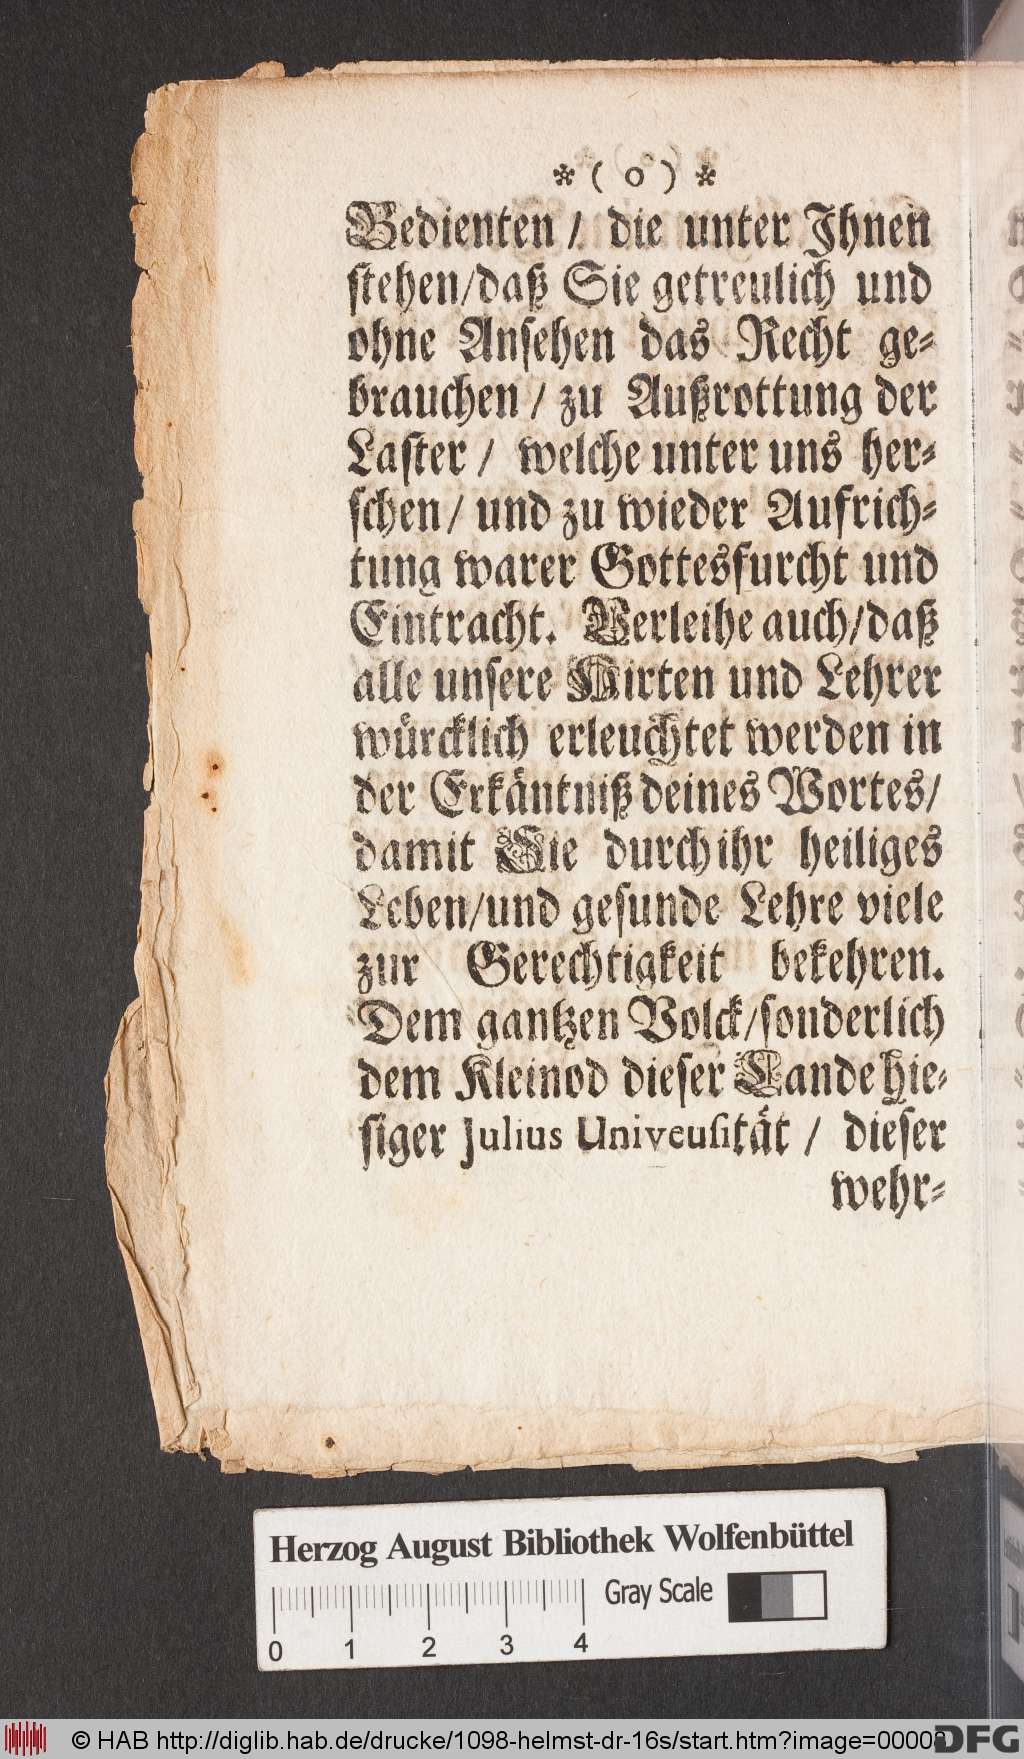 * ( o ) *
Bedienten / die unter Ihnen
stehen/daß Sie getreulich und
ohne Ansehen das Recht ge⸗
brauchen / zu Außrottung der
Laster / welche unter uns her⸗
schen / und zu wieder Aufrich⸗
tung warer Gottesfurcht und
Eintracht. Verleihe auch/daß
alle unsere Hirten und Lehrer
würcklich erleuchtet werden in
der Erkäntniß deines Wortes/
damit Sie durch ihr heiliges
Leben/und gesunde Lehre viele
zur Gerechtigkeit bekehren.
Dem gantzen Volck/sonderlich
dem Kleinod dieser Lande hie⸗
siger Julius Univeusität / dieser
wehr⸗
Herzog August Bibliothek Wolfenbüttel
Gray Scale
0 1 2 3 4
© HAB http://diglib.hab.de/drucke/1098-helmst-dr-16s/start.htm?image=00008
DFG